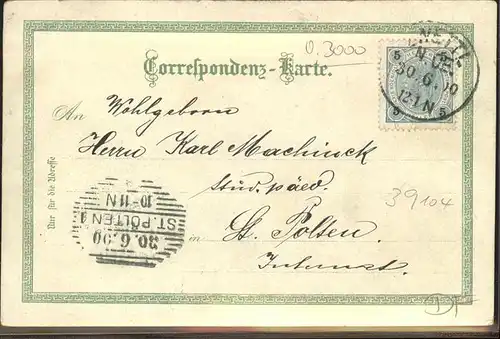 O.3000
Correspondenz-Karte.
30.6.00
12-1N
5
5
An Wohlgeborn
Herrn Karl Machinek
stud. päed.
in St. Pölten
Internat.
Nur für die Adresse
ST. PÖLTEN 1
30.6.00
10-11N
39104